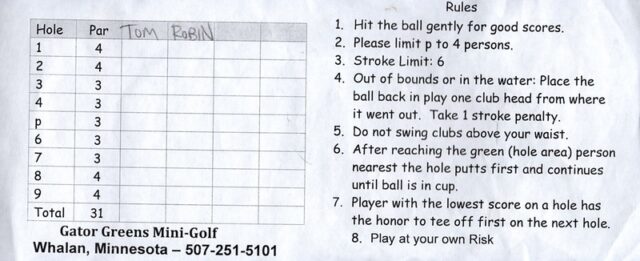 Hole Par TOM ROBIN
1 4
2 4
3 3
4 3
p 3
6 3
7 3
8 4
9 4
Total 31
Gator Greens Mini-Golf
Whalan, Minnesota – 507-251-5101
Rules
1. Hit the ball gently for good scores.
2. Please limit p to 4 persons.
3. Stroke Limit: 6
4. Out of bounds or in the water: Place the
ball back in play one club head from where
it went out. Take 1 stroke penalty.
5. Do not swing clubs above your waist.
6. After reaching the green (hole area) person
nearest the hole putts first and continues
until ball is in cup.
7. Player with the lowest score on a hole has
the honor to tee off first on the next hole.
8. Play at your own Risk